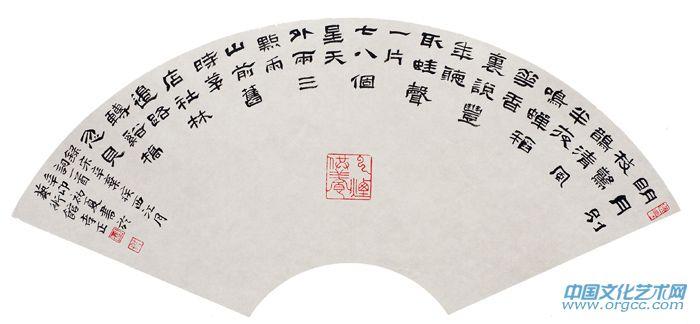 明月別
枝驚
鵲清風
半夜
鳴蟬稻
華香
裏說豐
年聽
取蛙聲
一片
七八個
星天
外兩三
點雨
山前舊
時茅
店社林
邊路
轉谿橋
忽見
錄宋辛棄疾西江月
詞一首
夏書於
藝術館李正
雲煙供養
中国文化艺术网
www.orgcc.com